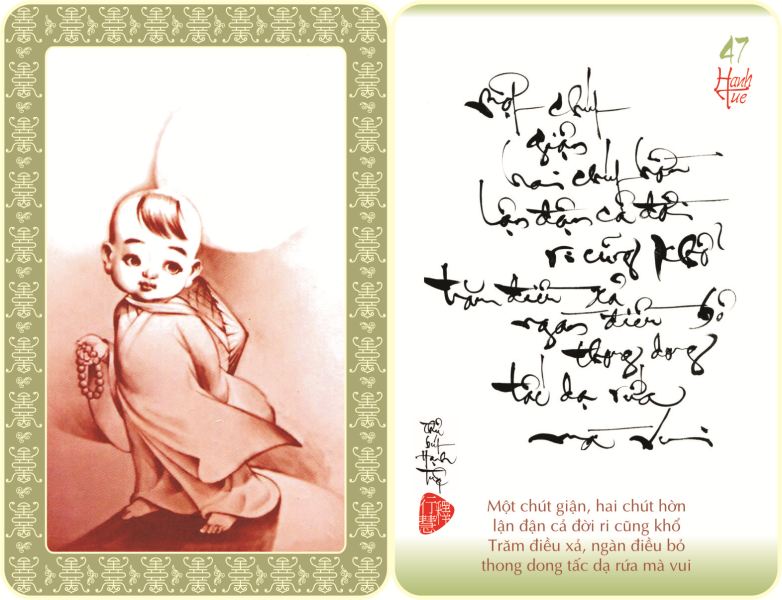 47
Hanh
Tue
một chút
giận
hai chút hờn
lận đận cả đời
ri cũng khổ
trăm điều xả
ngàn điều bỏ
thong dong
tấc dạ rứa
mà vui
Thủ
bút
Hạnh
Tuệ
釋
行慧
Một chút giận, hai chút hờn
lận đận cả đời ri cũng khổ
Trăm điều xả, ngàn điều bỏ
thong dong tấc dạ rứa mà vui